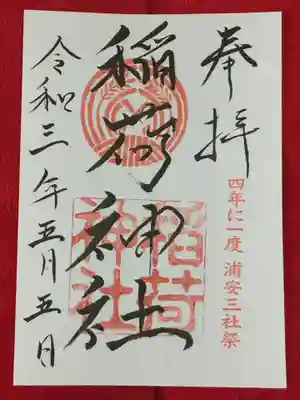 奉拝
四年に一度 浦安三社祭
稲荷神社
稲荷
神社
令和三年五月五日